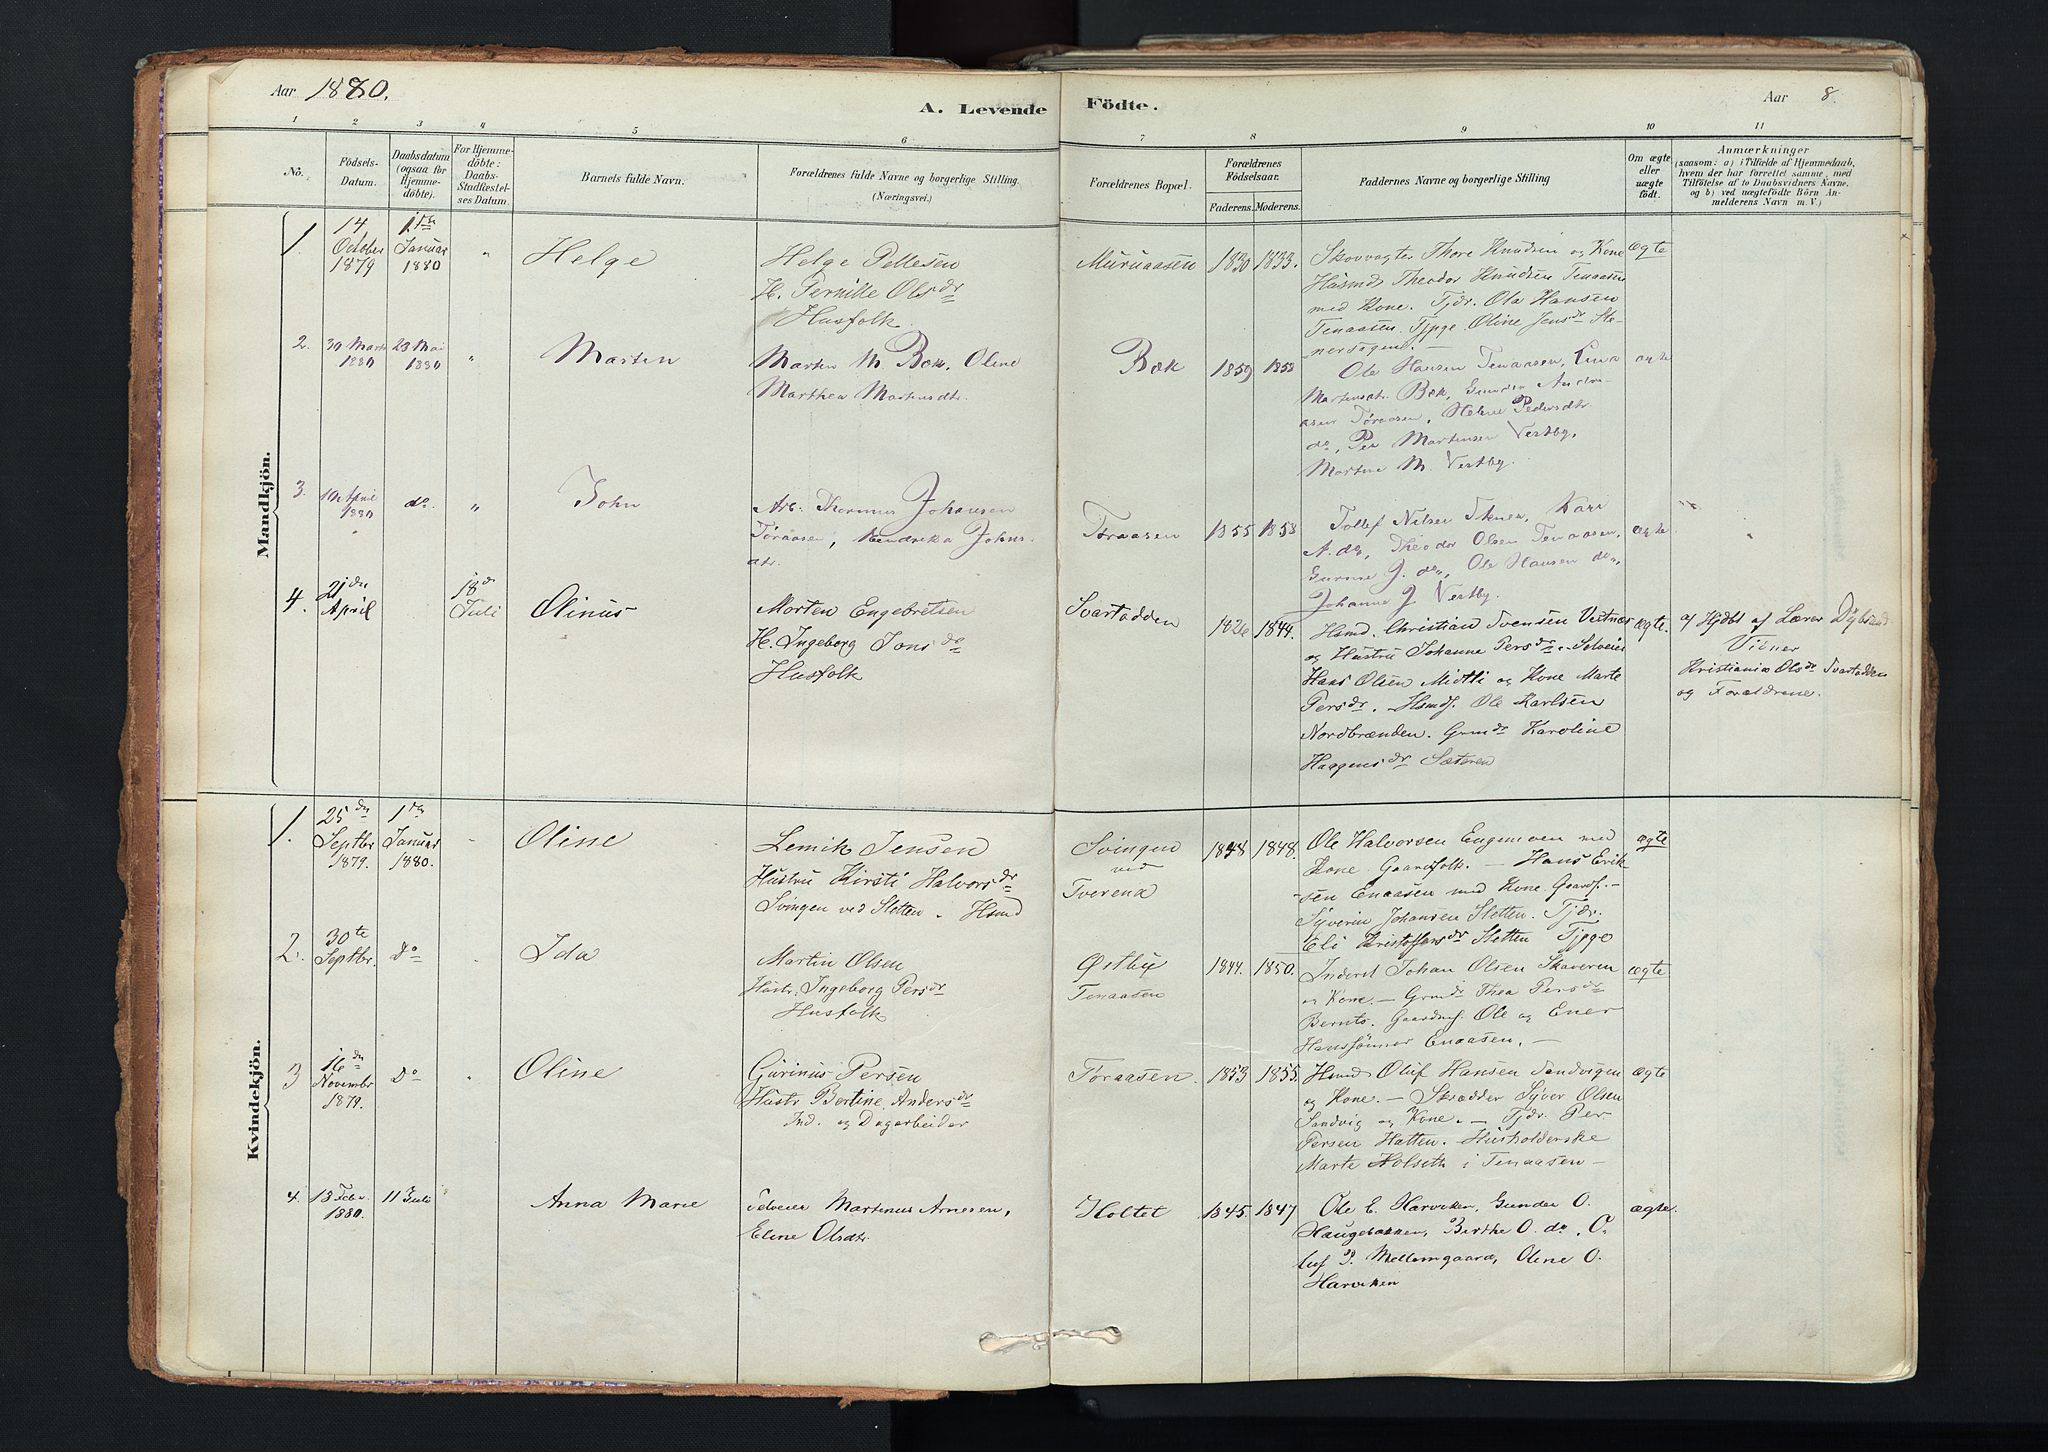 Aar 1880.
A. Levende
Födte.
Aar 8.
1 2 3 4 5 6
7 8 9 10 11
No. Födsels-Datum. Daabsdatum (ogsaa for Hjemmedöbte). For Hjemmedöbte: Daabs-Stadfæstelses Datum. Barnets fulde Navn. Forældrenes fulde Navne og borgerlige Stilling (Næringsvei.)
Forældrenes Bopæl. Forældrenes Födselsaar. Faderens. Moderens. Faddernes Navne og borgerlige Stilling Om ægte eller uægte födt. Anmærkninger (saasom: a) i Tilfælde af Hjemmedaab, hvem der har forrettet samme, med Tilföielse af to Daabsvidners Navne. og b) ved uægtefödte Börn Anmelderens Navn m. V.)
Mandkjön.
1. 14 October 1879 1ste Januar 1880 " Helge
Helge Pellesen
H. Pernille Olsdr
Husfolk
Muruaasen 1830 1833.
Skovvogter Thore Knudsen og Kone
Husmd Theodor Knudsen Tenaasen
med Kone. Tjdr. Ole Hansen
Tenaasen. Tjpge. Oline Jensdr Ste-
nersogen. —
ægte
2. 30 Marts 1880 23 Mai 1880 " Martin
Martin M. Bæk. Oline
Marthea Martinsdtr.
Bæk 1859 1858
Ole Hansen Tenaasen,
Martinsdtr. Bæk, Gunder
Toraasen, Helene Pedersdtr
do, Per Martinsen Vestby,
Martine M. Vestby.
ægte
3. 10 April 1880 do. " John
Arb. Thormus Johansen
Toraasen, Hendrika Johns-
dtr.
Toraasen 1855 1858
Tollef Nilsen Kari
N. do, Theodor Olsen Tenaasen,
J. do, Ole Hansen do,
Johanne J Vestby.
ægte
4. 21de April 18de Juli Olinus
Morten Engebretsen
H. Ingeborg Jonsdr
Husfolk
Svartadden 1826 1844.
Hsmd. Christian Svensen Vestnæs
og Hustru Johanne Persdr. Selveier
Hans Olsen Midtli og Kone Marte
Persdr. Hsmd. Ole Karlsen
Nordbrænden. Grmdr Karoline
Haagensdr Sæteren
ægte.
af Hjdbt af Lærer Dybsand
Vidner
Kristiania Olsdr Svartadden
og Forældrene.
Kvindekjön.
1. 25de Septbr 1879. 1ste Januar 1880. " Oline
Lemik Jensen
Hustru Kirsti Halvorsdr
Svingen ved Sletten. Hsmd
Svingen
ved
Tverena
1848 1848.
Ole Halvorsen Engemoen med
Kone Gaardfolk. — Hans Erik-
sen Enaasen med Kone Gaardf. —
Syverin Johansen Sletten. Tjdr.
Eli Kristoffersdr Sletten Tjpge
ægte
2. 30te Septbr. Do " Ida
Martin Olsen
Hustr. Ingeborg Persdr
Husfolk
Østby
Tenaasen
1844. 1850.
Inderst Johan Olsen Skaveren
og Kone. — Grmdr Thea Persdr
Bernts. Gaardmf. Ole og Ener
Hanssönner Enaasen. —
ægte
3 16de Novembr 1879. Do " Oline
Gurinus Persen
Hustr Bertine Andersdr
Ind. og Dagarbeider
Toraasen. 1853 1855.
Hsmd Oluf Hansen Sandvigen
og Kone. — Skrædder Syver Olsen
Sandvig og Kone. — Tjdr. Per
Persen Hatten. Husholderske
Marte Holseth i Tenaasen —
ægte
4. 13 Febr. 1880. 11 Juli Anna Marie
Selveier Martinus Arnesen,
Eline Olsdtr.
Holtet 1845. 1847
Ole E. Harviken, Gunder O.
Haugebakken, Birthe O. do, O-
luf P. Mellemgaard, Olene O.
Harviken
ægte.